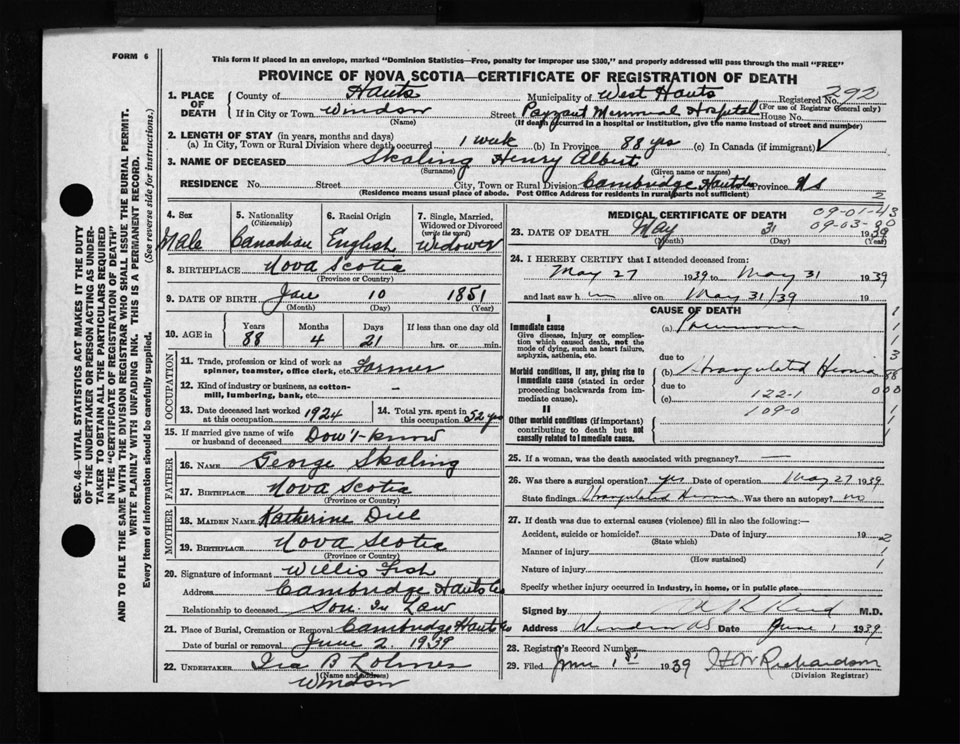 FORM 6
This form if placed in an envelope, marked "Dominion Statistics—Free, penalty for improper use $300," and properly addressed will pass through the mail "FREE"
PROVINCE OF NOVA SCOTIA—CERTIFICATE OF REGISTRATION OF DEATH
1. PLACE OF DEATH
County of Hants Municipality of West Hants Registered No. 292
(For use of Registrar General only)
If in City or Town Windsor Street Payzant Memorial Hospital House No.
(Name) (If death occurred in a hospital or institution, give the name instead of street and number)
2. LENGTH OF STAY (in years, months and days)
(a) In City, Town or Rural Division where death occurred 1 week (b) In Province 88 yrs (c) In Canada (if immigrant)
3. NAME OF DECEASED Skaling Henry Albert
(Surname) (Given name or names)
RESIDENCE No. Street City, Town or Rural Division Cambridge Hants Co Province N S
(Residence means usual place of abode. Post Office Address for residents in rural parts not sufficient)
2
4. Sex Male
5. Nationality (Citizenship) Canadian
6. Racial Origin English
7. Single, Married, Widowed or Divorced (write the word) Widower
8. BIRTHPLACE Nova Scotia
(Province or Country)
9. DATE OF BIRTH Jan 10 1851
(Month) (Day) (Year)
10. AGE in Years 88 Months 4 Days 21 If less than one day old hrs. or min.
OCCUPATION
11. Trade, profession or kind of work as spinner, teamster, office clerk, etc. Farmer
12. Kind of industry or business, as cotton-mill, lumbering, bank, etc. —
13. Date deceased last worked at this occupation 1924
14. Total yrs. spent in this occupation 52 yrs
15. If married give name of wife or husband of deceased Dow't-know
FATHER
16. NAME George Skaling
17. BIRTHPLACE Nova Scotia
MOTHER
18. MAIDEN NAME Katherine Dill
19. BIRTHPLACE Nova Scotia
(Province or Country)
20. Signature of informant Willis Fish
Address Cambridge Hants Co
Relationship to deceased Son In Law
21. Place of Burial, Cremation or Removal Cambridge Hants Co
Date of burial or removal June 2 1939
22. UNDERTAKER Ira B
(Name and address)
Windsor
MEDICAL CERTIFICATE OF DEATH
09-01-43
09-03-90
23. DATE OF DEATH May 31 1939
(Month) (Day) (Year)
24. I HEREBY CERTIFY that I attended deceased from:
May 27 1939 to May 31 1939
and last saw him alive on May 31/39 19
CAUSE OF DEATH
I
Immediate cause
Give disease, injury or complication which caused death, not the mode of dying, such as heart failure, asphyxia, asthenia, etc.
(a) Pneumonia
due to
Morbid conditions, if any, giving rise to immediate cause (stated in order proceeding backwards from immediate cause).
(b) Strangulated Hernia
due to
(c) 122-1
109-0
II
Other morbid conditions (if important) contributing to death but not causally related to immediate cause.
1
1
3
88
000
1
1
25. If a woman, was the death associated with pregnancy? —
26. Was there a surgical operation? yes Date of operation May 27 1939
State findings Strangulated Hernia Was there an autopsy? no
27. If death was due to external causes (violence) fill in also the following:—
Accident, suicide or homicide? Date of injury 19
(State which)
Manner of injury
(How sustained)
Nature of injury
2
1
1
Specify whether injury occurred in industry, in home, or in public place
Signed by Reid M.D.
Address Windsor NS Date June 1 1939
28. Registrar's Record Number
29. Filed June 1st 1939 Richardson
(Division Registrar)
SEC. 46—VITAL STATISTICS ACT MAKES IT THE DUTY
OF THE UNDERTAKER OR PERSON ACTING AS UNDER-
TAKER TO OBTAIN ALL THE PARTICULARS REQUIRED
IN THE "CERTIFICATE OF REGISTRATION OF DEATH"
AND TO FILE THE SAME WITH THE DIVISION REGISTRAR WHO SHALL ISSUE THE BURIAL PERMIT.
WRITE PLAINLY WITH UNFADING INK. THIS IS A PERMANENT RECORD.
Every item of information should be carefully supplied. (See reverse side for instructions.)